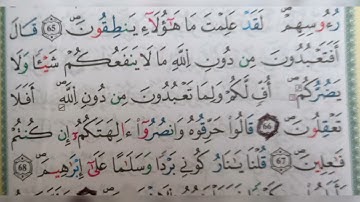 رُءُوسِهِمْ لَقَدْ عَلِمْتَ مَا هَٰٓؤُلَآءِ يَنطِقُونَ ٦٥ قَالَ
أَفَتَعْبُدُونَ مِن دُونِ ٱللَّهِ مَا لَا يَنفَعُكُمْ شَيْـًٔا وَلَا
يَضُرُّكُمْ أُفٍّ لَّكُمْ وَلِمَا تَعْبُدُونَ مِن دُونِ ٱللَّهِ أَفَلَا
تَعْقِلُونَ ٦٦ قَالُوا۟ حَرِّقُوهُ وَٱنصُرُوٓا۟ ءَالِهَتَكُمْ إِن كُنتُمْ
فَٰعِلِينَ ٦٧ قُلْنَا يَٰنَارُ كُونِى بَرْدًا وَسَلَٰمًا عَلَىٰٓ إِبْرَٰهِيمَ ٦٨